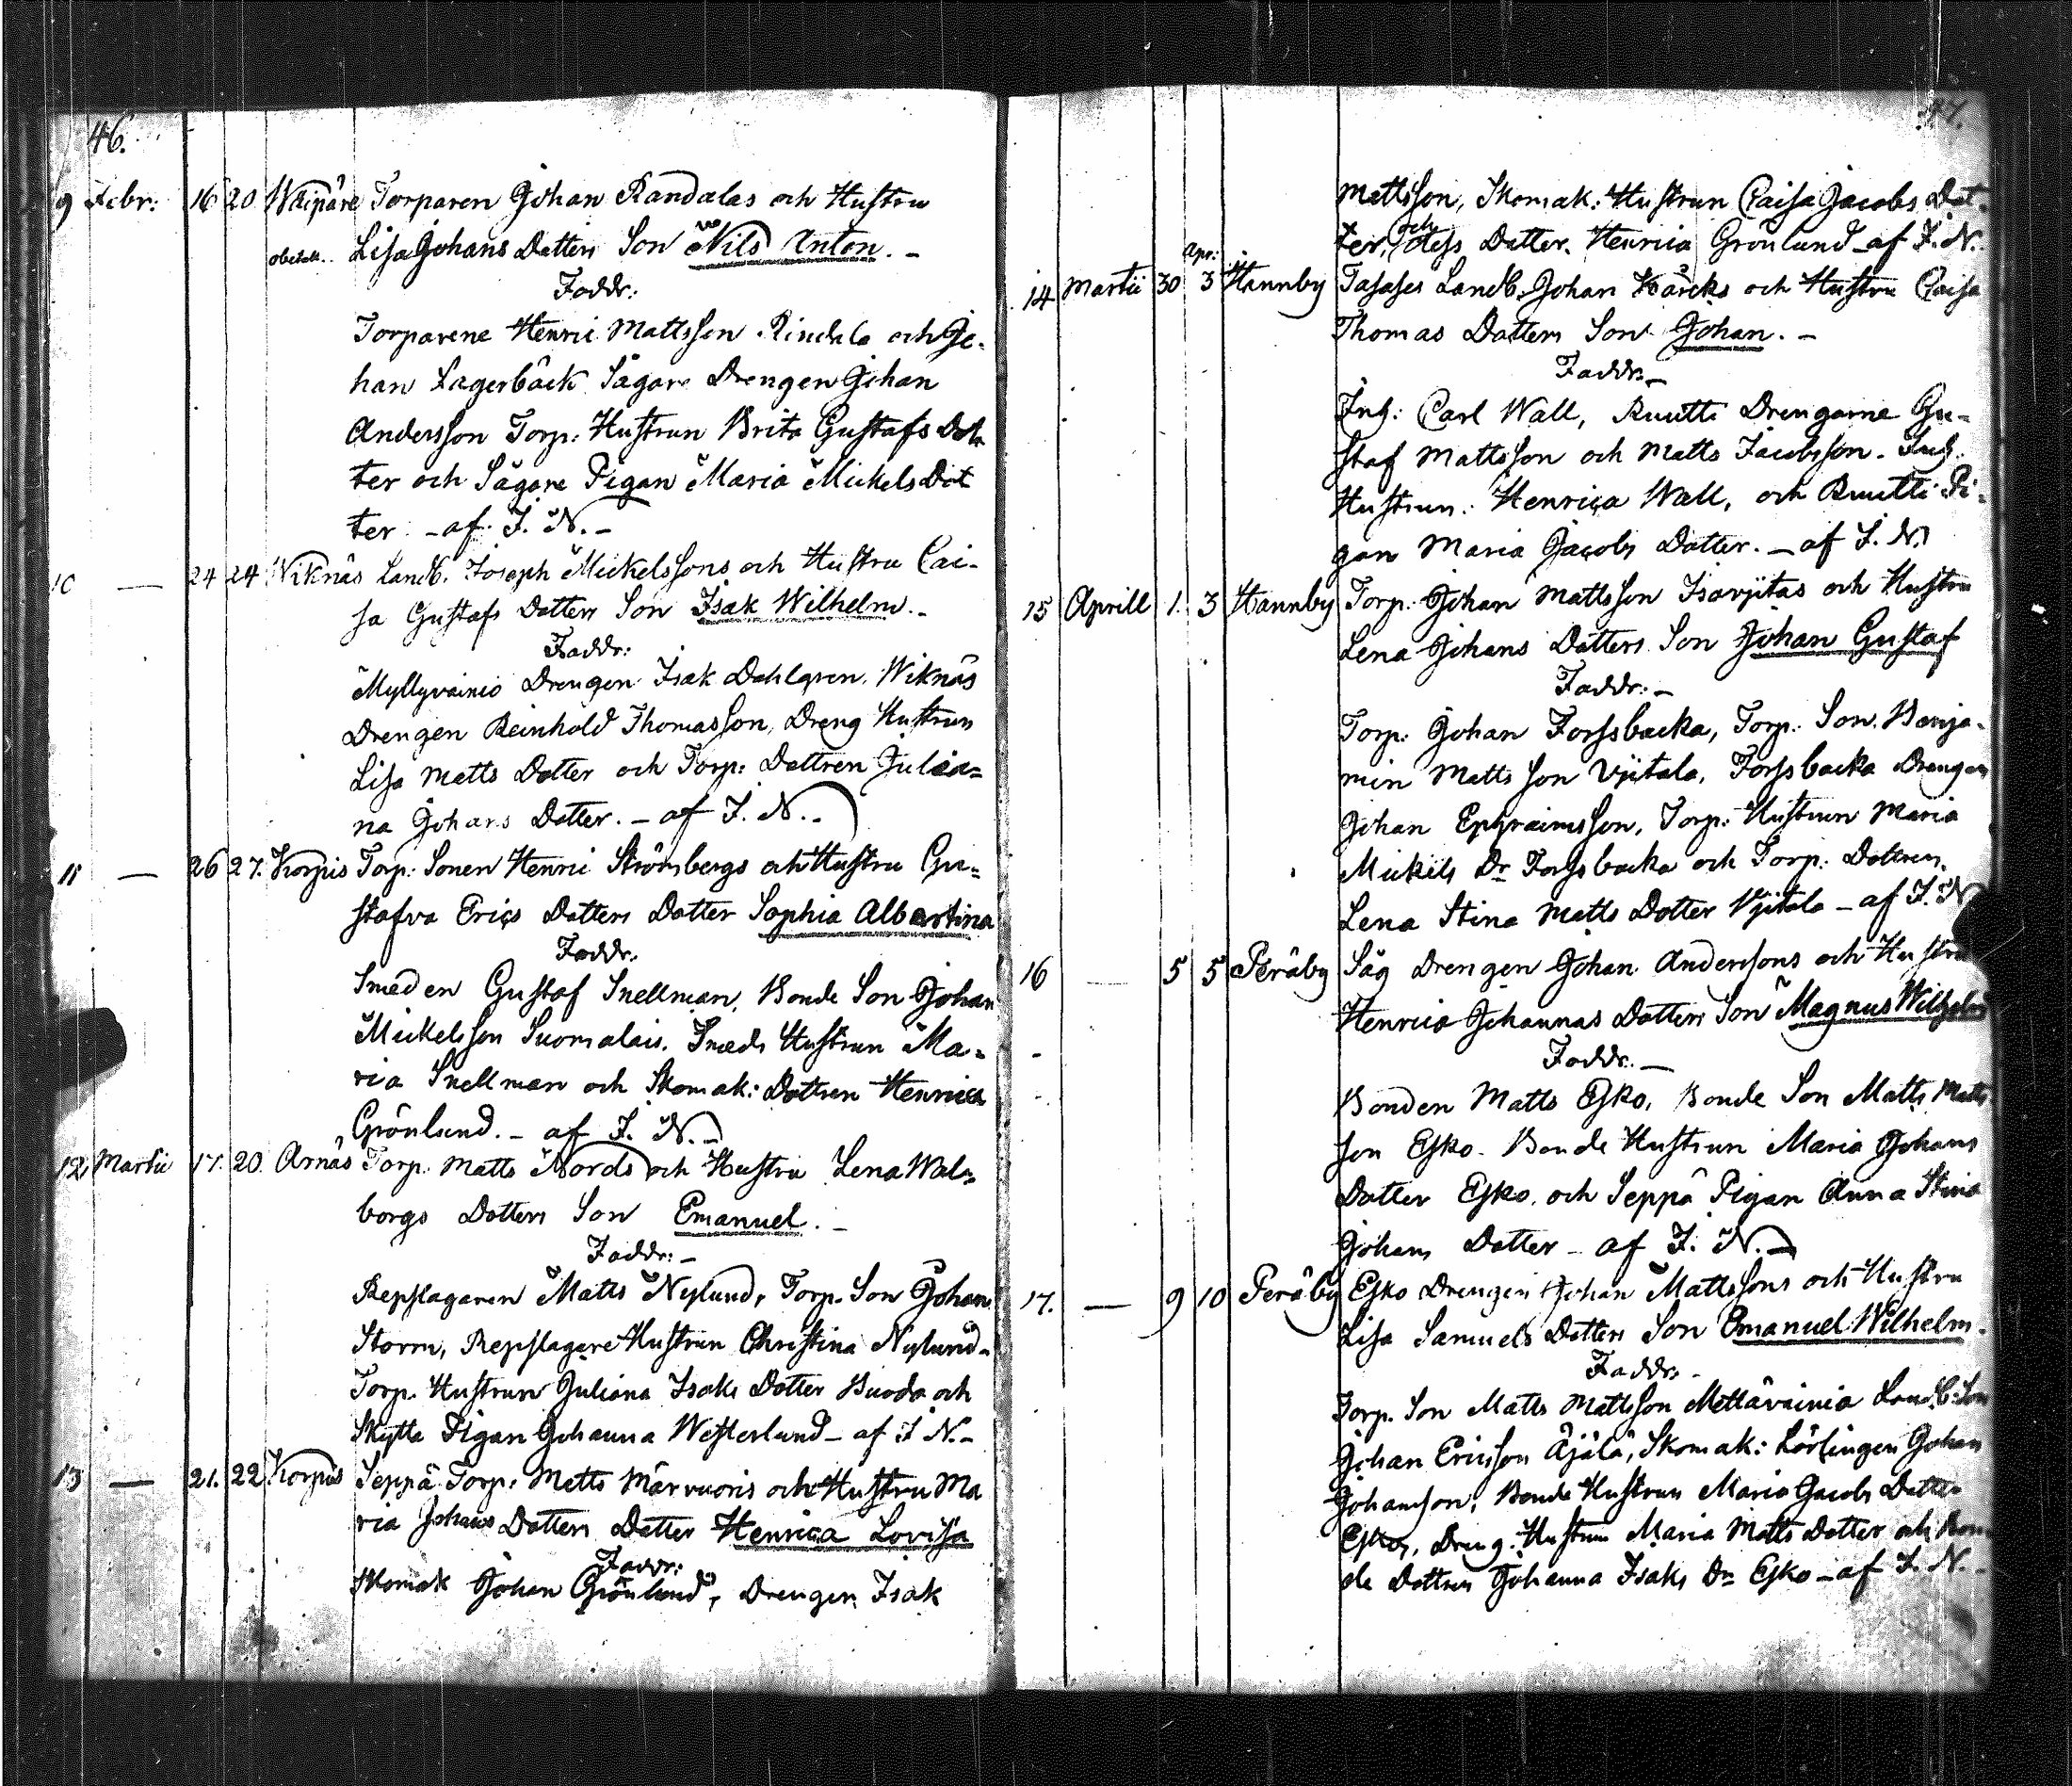 46.
9 Febr: 16 20 Waipäre Torparen Johan Randalas och Hustru
Lisa Johans Dotters Son Nils Anton. -
Faddr:
Torparene Henric Mattsson Rindala och Jo-
han Lagerbäck Sågare Drengen Johan
Andersson Torp: Hustrun Brita Gustafs Dot
ter och Sågare Pigan Maria Mickels Dot
ter - af J. N. -
10 — 24 24 Wiknäs Landb. Joseph Mickelssons och Hustru Cai-
sa Gustafs Dotters Son Isak Wilhelm. -
Faddr:
Myllyvainio Drengen Isak Dahlgren, Wiknäs
Drengen Reinhold Thomasson, Dreng Hustrun
Lisa Matts Dotter och Torp: Dottren Julia-
na Johans Dotter. - af J. N. -
11 — 26 27. Korpis Torp: Sonen Henric Strömbergs och Hustru Gu-
stafva Erics Dotters Dotter Sophia Albertina
Faddr.
Smeden Gustaf Snellman, Bonde Son Johan
Mickelsson Suomalais, Smeds Hustrun Ma-
ria Snellman och Skomak: Dottren Henrica
Grönlund. - af J. N. -
12 Martii 17. 20. Arnäs Torp. Matts Nords och Hustru Lena Wal-
borgs Dotters Son Emanuel. -
Faddr: -
Repslagaren Matts Nylund, Torp. Son Johan
Storm, Repslagare Hustrun Christina Nylund -
Torp. Hustrun Juliana Isaks Dotter Buoda och
Skytta Pigan Johanna Westerlund - af J N. -
13 — 21. 22 Korpis Seppä Torp: Matts Märvuoris och Hustru Ma
ria Johans Dotters Dotter Henrica Lovisa
Faddr:
Skomak Johan Grönlund, Drengen Isak
47.
Mattsson, Skomak: Hustrun Caisa Jacobs Dot-
ter, och Dotter. Henrica Grönlund - af J. N.
14 Martii 30 Apr: 3 Hannby Landb. Johan Kärcks och Hustru Caisa
Thomas Dotters Son Johan. -
Faddr: -
Inh: Carl Wall, Ruutti Drengarne Gu-
staf Mattsson och Matts Jacobsson. Inh.
Hustrun: Henrica Wall, och Ruutti Pi-
gan Maria Jacobs Dotter. - af J. N.
15 Aprill 1. 3 Hannby Torp: Johan Mattsson och Hustru
Lena Johans Dotters Son Johan Gustaf
Faddr: -
Torp: Johan Forssbacka, Torp: Son Benja-
min Mattsson Vjitala, Forssbacka Drengen
Johan Ephraimsson, Torp: Hustrun Maria
Mickels Dr Forssbacka och Torp: Dottren
Lena Stina Matts Dotter Vjitala - af J. N
16 — 5 5 Peräby Såg Drengen Johan Anderssons och Hustru
Henrica Johannas Dotters Son Magnus Wilhelm
Faddr: -
Bonden Matts Esko, Bonde Son Matts Matts
son Esko. Bonde Hustrun Maria Johans
Dotter Esko. och Seppä Pigan Anna Stina
Johans Dotter - af J. N. -
17. — 9 10 Peräby Esko Drengen Johan Mattssons och Hustru
Lisa Samuels Dotters Son Emanuel Wilhelm.
Faddr. -
Torp. Son Matts Mattsson Mettävainio Landb: Son
Johan Ericsson Äjälä, Skomak: Lärlingen Johan
Johansson, Bonde Hustrun Maria Jacobs Dotter
Esko, Dreng: Hustrun Maria Matts Dotter och Bon
de Dottren Johanna Isaks Dr Esko - af J. N. -